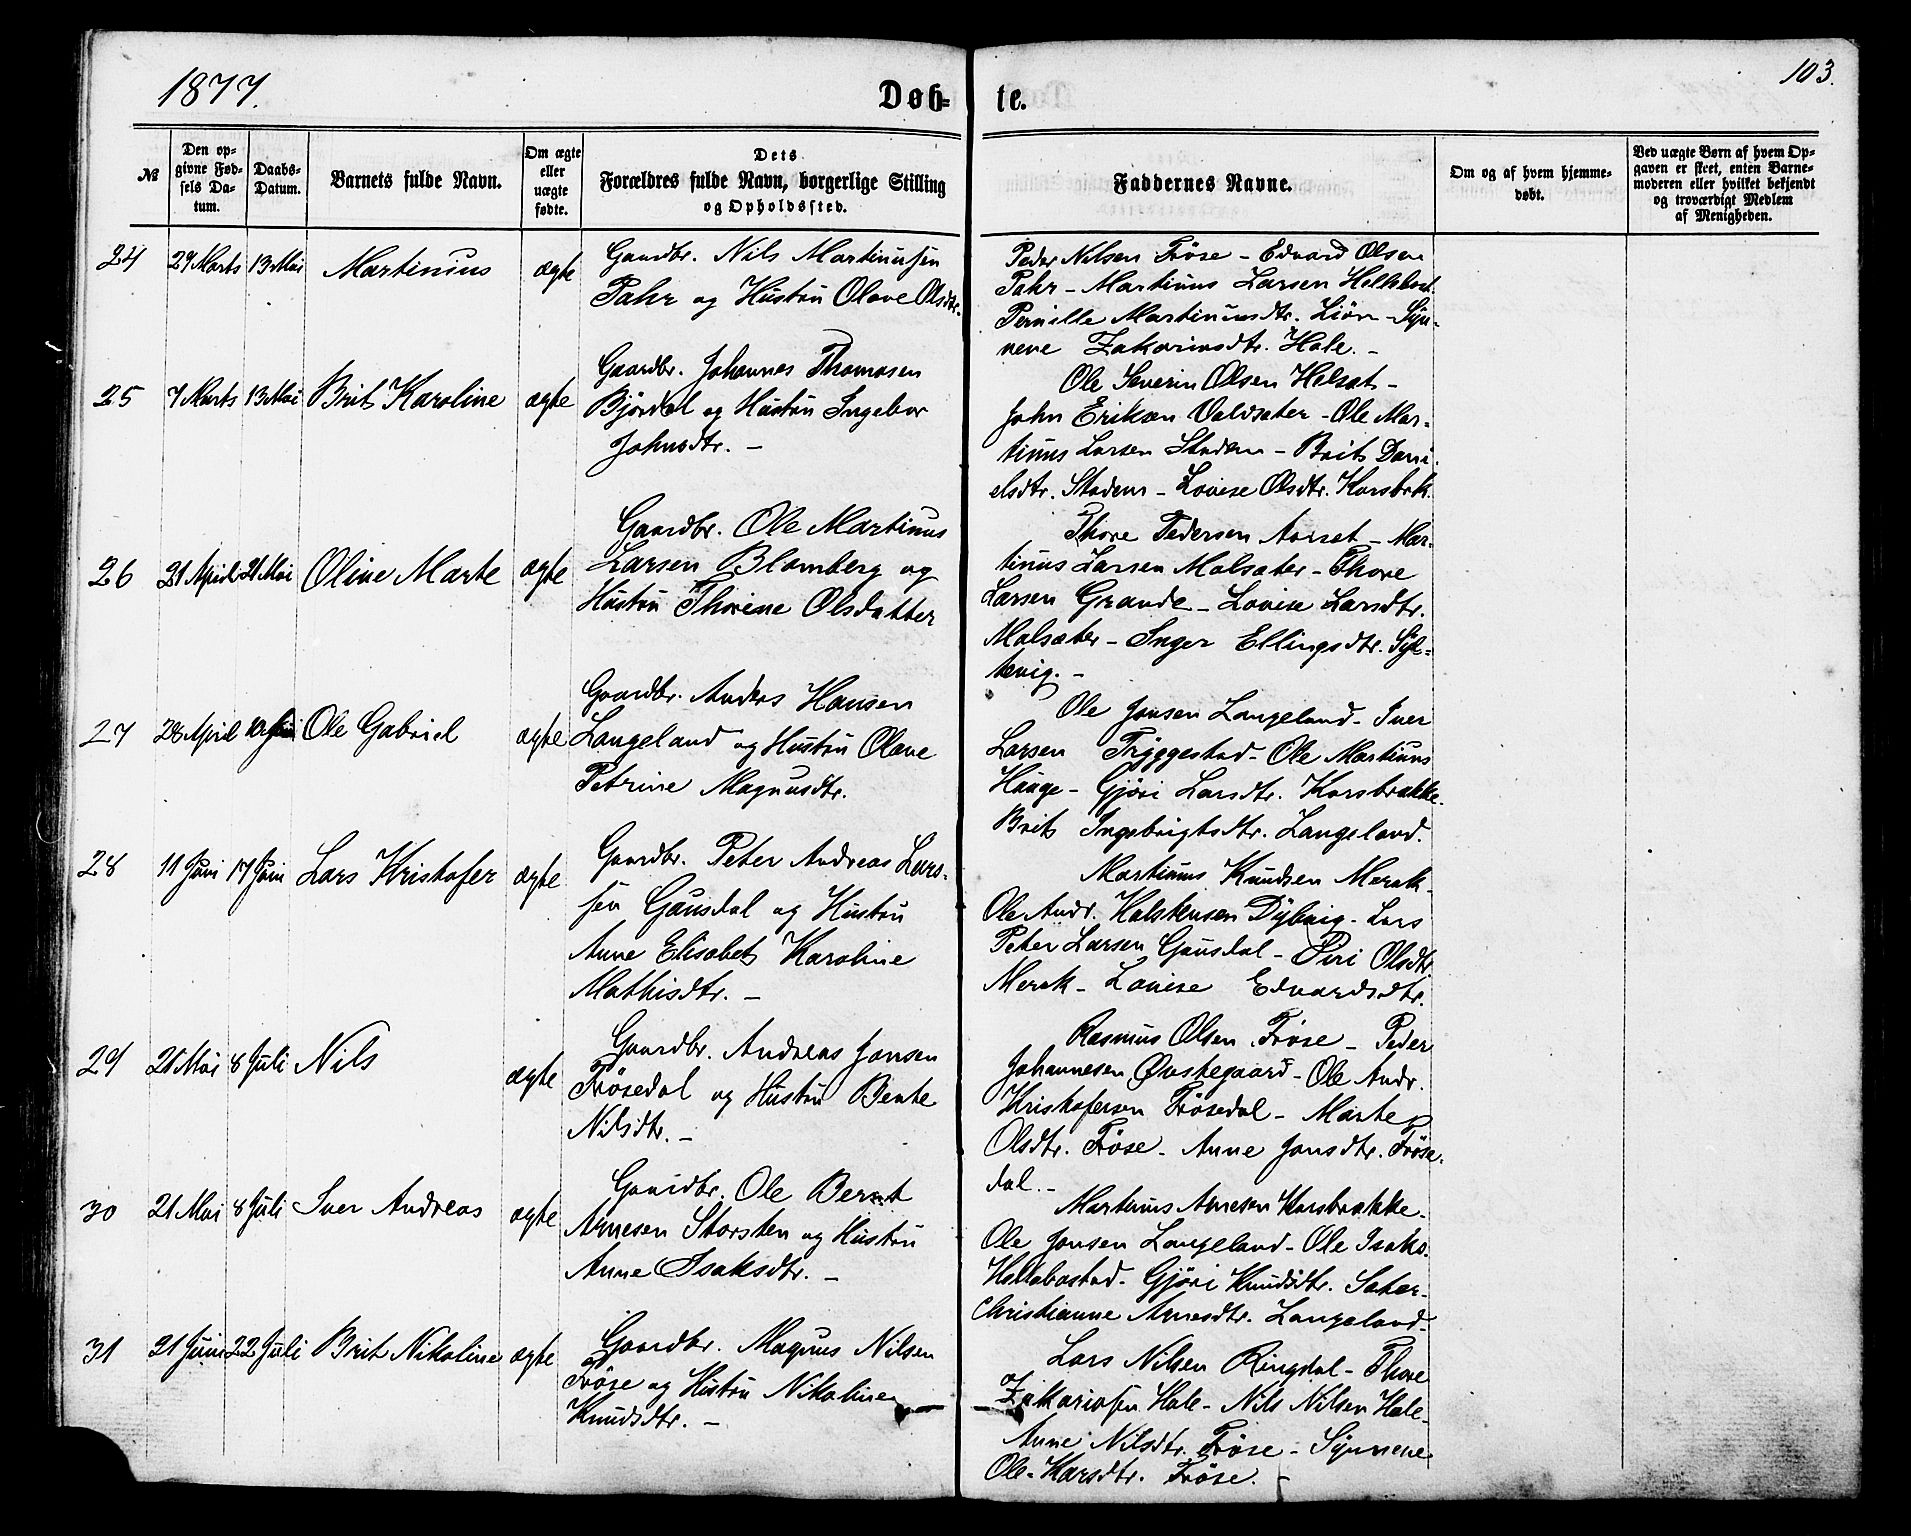 1877.
Døb-
te.
103.
№
Den op-
givne Fød-
sels Da-
tum.
Daabs-
Datum.
Barnets fulde Navn.
Om ægte
eller
uægte
fødte.
Dets
Forældres fulde Navn, borgerlige Stilling
og Opholdssted.
Faddernes Navne.
Om og af hvem hjemme-
døbt.
Ved uægte Børn af hvem Op-
gaven er skeet, enten Barne-
moderen eller hvilket bekjendt
og troværdigt Medlem
af Menigheden.
24 29 Marts 13 Mai Martinius ægte
Gaardbr. Nils Martinussen
Pahr og Hustru Olave Olsdtr.
Peder Nilsen Frøse - Edvard Olsen
Pahr - Martinus Larsen
Pernille Martinusdtr. Liøn - Syn-
neve Zakariasdtr. Hole. -
25 7 Marts 13 Mai Brit Karoline ægte
Gaardbr. Johannes Thomasen
Bjørdal og Hustru Ingebor
Johnsdtr. -
Ole Severin Olsen Helset -
John Eriksen Valdsæter - Ole Mar-
tinus Larsen Stadem - Brit Dani-
elsdtr. Stadem - Lovise Olsdtr. Korsbrk.
26 21 April 21 Mai Oline Marte ægte
Gaardbr. Ole Martinus
Larsen Blomberg og
Hustru Thorine Olsdatter
Thore Pedersen Aarset - Mar-
tinus Larsen Molsæter - Thore
Larsen Grande - Lovise Larsdtr.
Molsæter - Inger Ellingsdtr. Syl-
tevig. -
27 28 April Ole Gabriel ægte
Gaardbr. Anders Hansen
Langeland og Hustru Olave
Petrine Magnusdtr.
Ole Jonsen Langeland - Iver
Larsen Tryggestad - Ole Martinus
Hauge - Gjøri Larsdtr. Korsbrække.
Brit Ingebrigtsdtr. Langeland.
28 11 Juni 17 Juni Lars Kristofer ægte
Gaardbr. Peter Andreas Lars-
sen Gausdal og Hustru
Anne Elisabet Karoline
Mathisdtr. -
Martinus Knudsen Merok -
Ole Andr. Halstensen Dybvig - Lars
Peter Larsen Gausdal - Siri Olsdtr.
Merok - Lovise Edvardsdtr.
29 28 Mai 8 Juli Nils ægte
Gaardbr. Andreas Jonsen
Frøsedal og Hustru Bente
Nilsdtr. -
Rasmus Olsen Frøse - Peder
Johannesen Øvstegaard - Ole Andr.
Kristofersen Frøsedal - Marte
Olsdtr. Frøse - Anne Jonsdtr. Frøse-
dal. -
30 21 Mai 8 Juli Iver Andreas ægte
Gaardbr. Ole Bernt
Arnesen Storsten og Hustru
Anne Isaksdtr. -
Martinus Arnesen Korsbrække.
Ole Jonsen Langeland - Ole Isaks.
Hellebostad - Gjøri Knudsdtr. Sæter-
Christianne Arnesdtr. Langeland -
31 21 Juni 22 Juli Brit Nikoline ægte
Gaardbr. Magnus Nilsen
Frøse og Hustru Nikoline
Knudsdtr. -
Lars Nilsen Ringdal - Thore
Zakariasen Hole - Nils Nilsen Hole -
Anne Nilsdtr. Frøse - Synneve
Ole-Karsdtr. Frøse. -